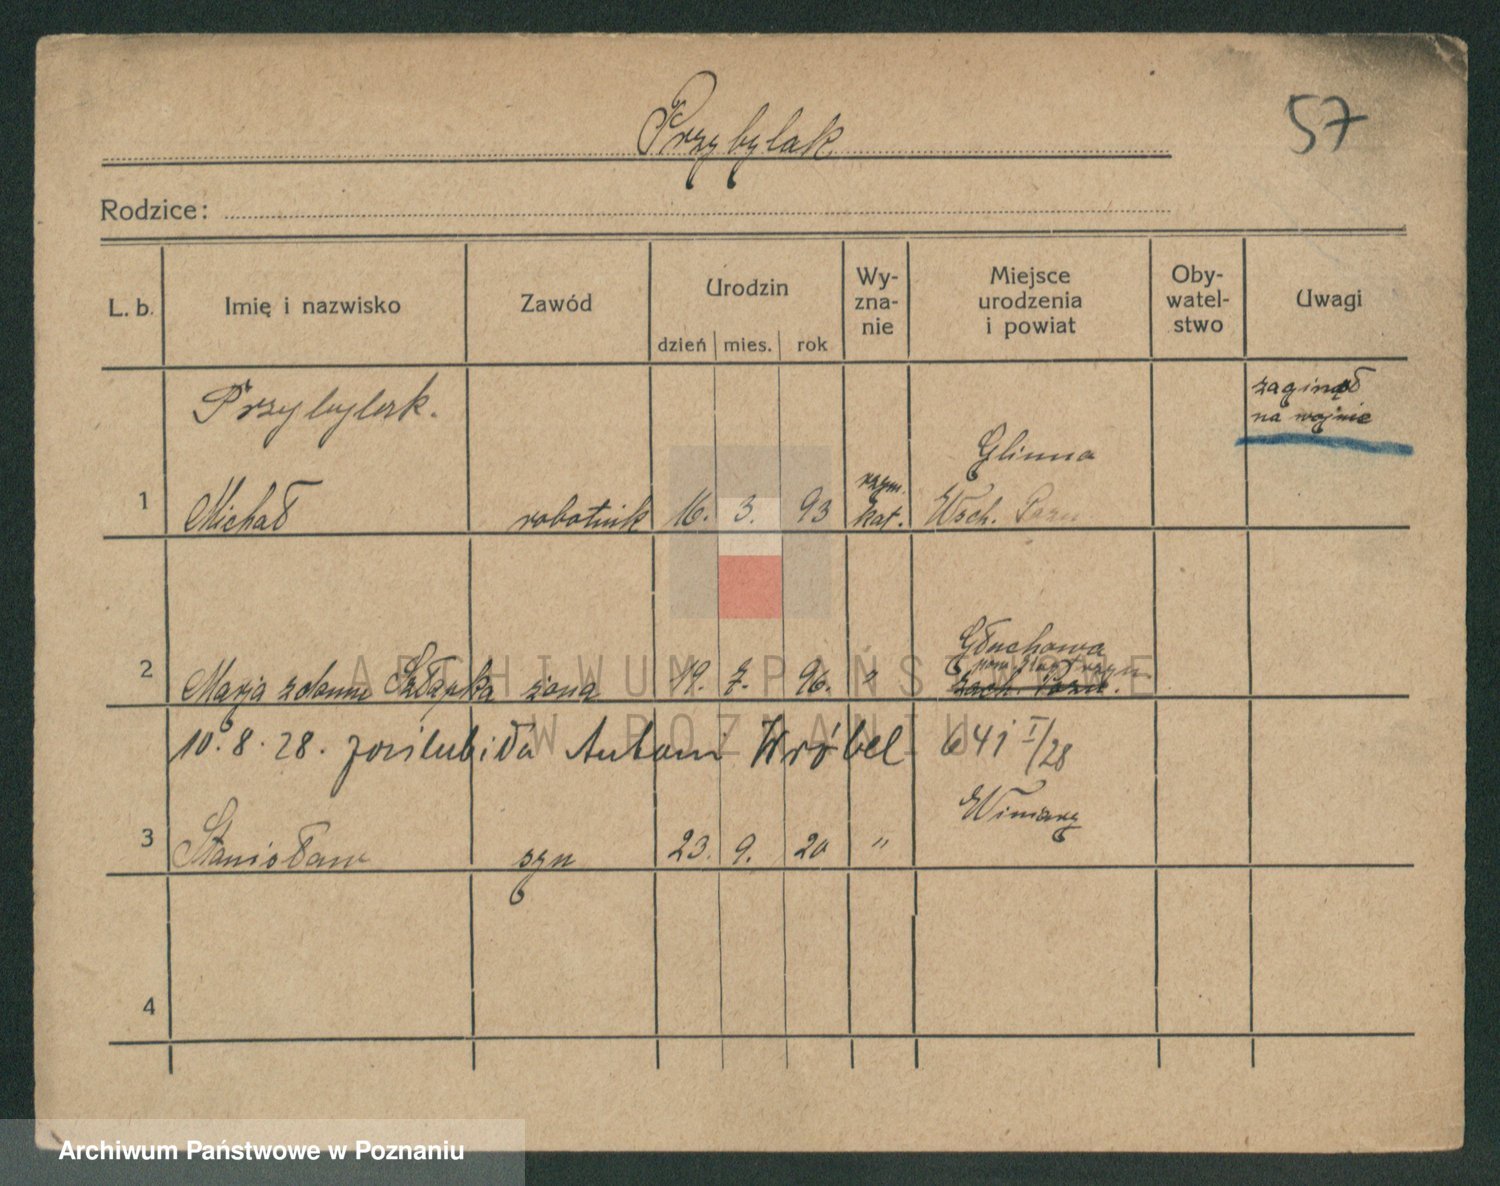 Przybylak
57
Rodzice:
L. b.
Imię i nazwisko
Zawód
Urodzin
dzień
mies.
rok
Wy-
zna-
nie
Miejsce
urodzenia
i powiat
Oby-
watel-
stwo
Uwagi
Przybylak.
zaginął
na wojnie
1
Michał
robotnik
16.
3.
93
rzym.
kat.
Glinna
Wsch. Pozn
2
Marja z domu
żona
19.
7.
96.
"
Głuchowa
Zach. Pozn.
10.8.28. Antoni Wróbel 641 I/28
3
Stanisław
syn
23.
9.
20
"
Winiary
4
ARCHIWUM PAŃSTWOWE
W POZNANIU
Archiwum Państwowe w Poznaniu